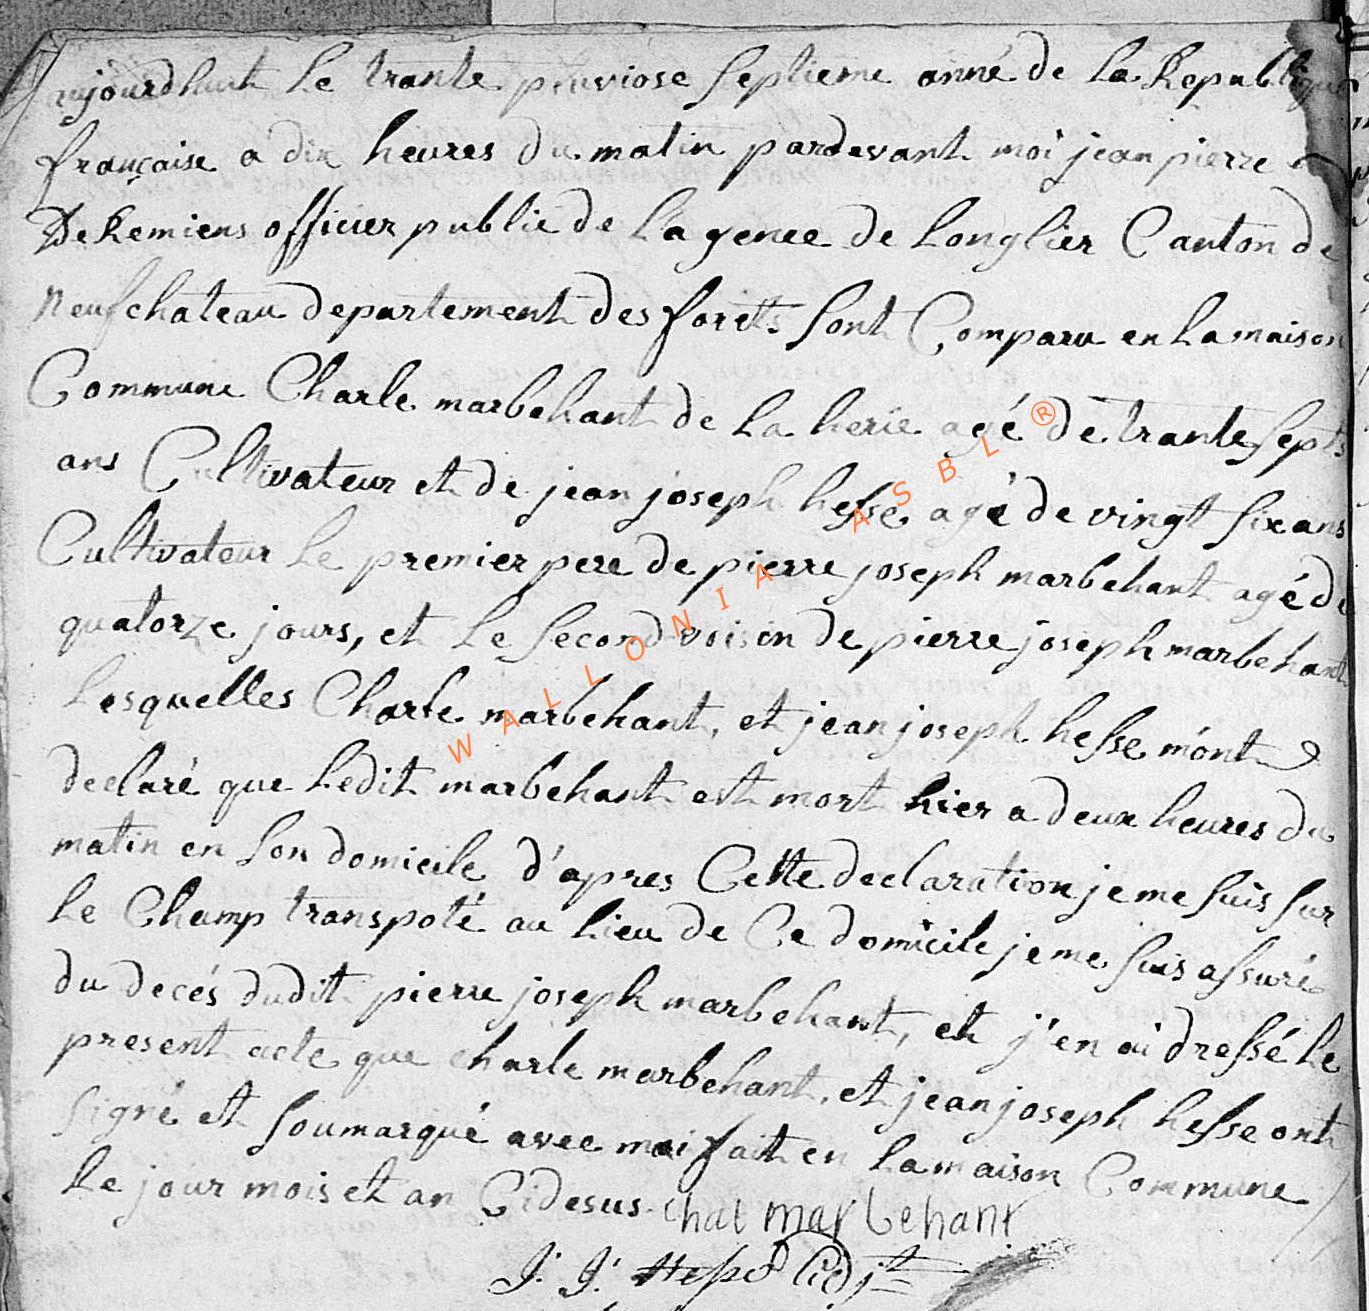 aujourdhuit le trante pluviose septieme anné de la Republique
française a dix heures du matin pardevant moi jean pierre
DeRemiens officier public de lagence de longlier Canton de
neufchateau departement des forets sont Comparu en la maison
Commune Charle marbehant de la herie agé de trante sept
ans Cultivateur et de jean joseph hesse agé de vingt six ans
Cultivateur le premier pere de pierre joseph marbehant agé de
quatorze jours, et le second voisin de pierre joseph marbehant
lesquelles Charle marbehant, et jean joseph hesse m'ont
declaré que ledit marbehant est mort hier a deux heures du
matin en son domicile d'apres Cette declaration je me suis sur
le Champ transpoté au lieu de Ce domicile je me suis assuré
du decés dudit pierre joseph marbehant, et j'en ai dressé le
present acte que charle marbehant, et jean joseph hesse ont
signé et soumarqué avec moi fait en la maison Commune
le jour mois et an Cidesus. Chal marbehant
J. J.
WALLONIA ASBL ®